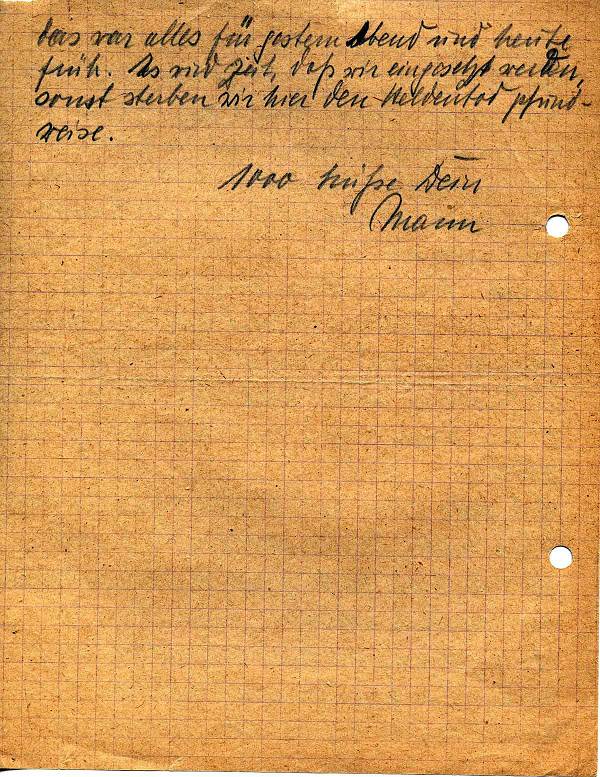 das war alles für gestern Abend und heute
früh. Es wird Zeit, daß wir eingesetzt werden,
sonst sterben wir hier den Heldentod pfund-
weise.
1000 Küsse Dein
Mann